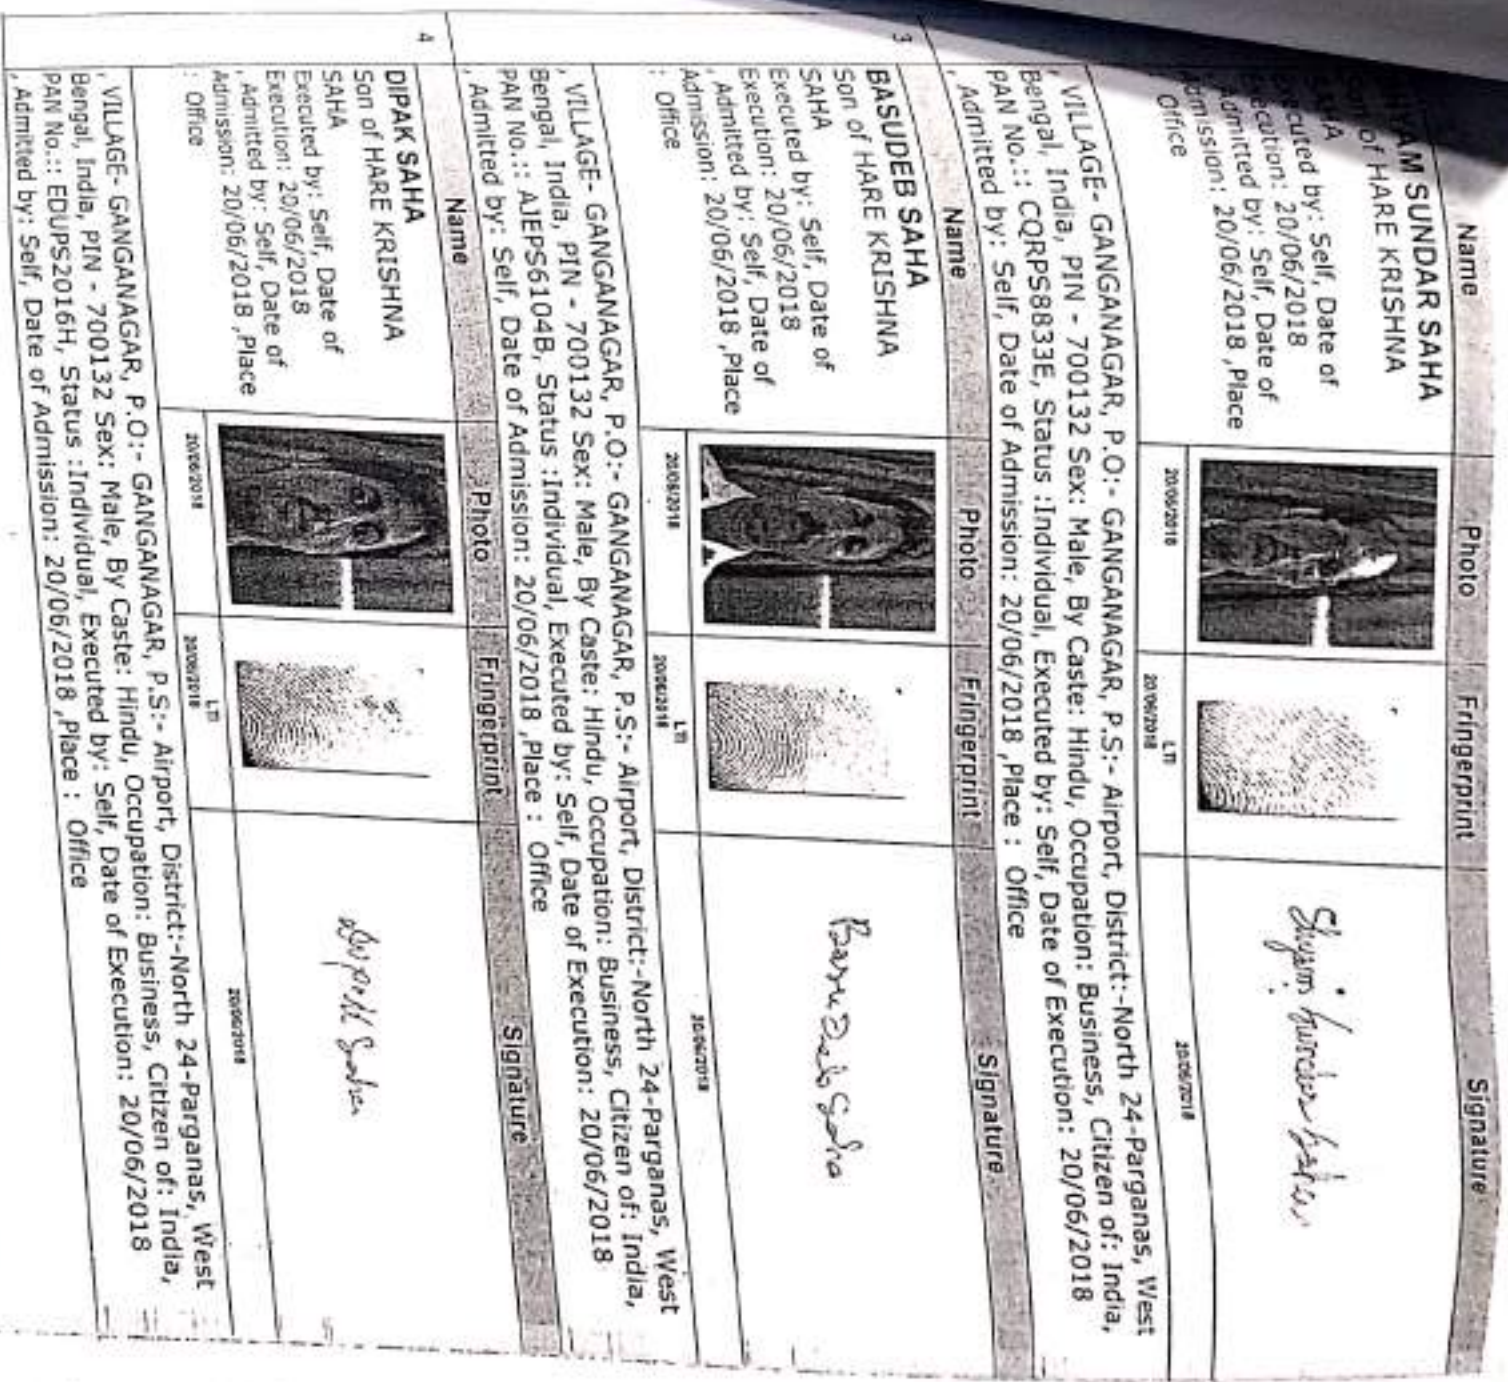 Name Photo Fringerprint Signature
SUNDAR SAHA
of HARE KRISHNA
cuted by: Self, Date of
ecution: 20/06/2018
Admitted by: Self, Date of
Admission: 20/06/2018 ,Place
Office
20/06/2018
LTI
20/06/2018
20/06/2018
Shyam
, VILLAGE- GANGANAGAR, P.O:- GANGANAGAR, P.S:- Airport, District:-North 24-Parganas, West
Bengal, India, PIN - 700132 Sex: Male, By Caste: Hindu, Occupation: Business, Citizen of: India,
PAN No.:: CQRPS8833E, Status :Individual, Executed by: Self, Date of Execution: 20/06/2018
, Admitted by: Self, Date of Admission: 20/06/2018 ,Place : Office
3
Name Photo Fringerprint Signature
BASUDEB SAHA
Son of HARE KRISHNA
SAHA
Executed by: Self, Date of
Execution: 20/06/2018
, Admitted by: Self, Date of
Admission: 20/06/2018 ,Place
: Office
20/06/2018
LTI
20/06/2018
20/06/2018
Basu Deb Saha
, VILLAGE- GANGANAGAR, P.O:- GANGANAGAR, P.S:- Airport, District:-North 24-Parganas, West
Bengal, India, PIN - 700132 Sex: Male, By Caste: Hindu, Occupation: Business, Citizen of: India,
PAN No.:: AJEPS6104B, Status :Individual, Executed by: Self, Date of Execution: 20/06/2018
, Admitted by: Self, Date of Admission: 20/06/2018 ,Place : Office
4
Name Photo Fringerprint Signature
DIPAK SAHA
Son of HARE KRISHNA
SAHA
Executed by: Self, Date of
Execution: 20/06/2018
, Admitted by: Self, Date of
Admission: 20/06/2018 ,Place
: Office
20/06/2018
LTI
20/06/2018
20/06/2018
, VILLAGE- GANGANAGAR, P.O:- GANGANAGAR, P.S:- Airport, District:-North 24-Parganas, West
Bengal, India, PIN - 700132 Sex: Male, By Caste: Hindu, Occupation: Business, Citizen of: India,
PAN No.:: EDUPS2016H, Status :Individual, Executed by: Self, Date of Execution: 20/06/2018
, Admitted by: Self, Date of Admission: 20/06/2018 ,Place : Office